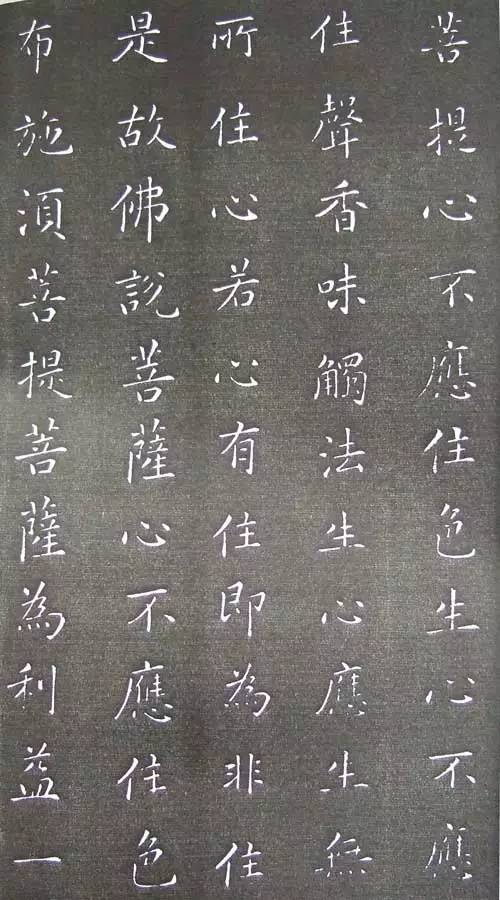 菩提心不應住色生心不應
住聲香味觸法生心應生無
所住心若心有住即為非住
是故佛說菩薩心不應住色
布施湏菩提菩薩為利益一